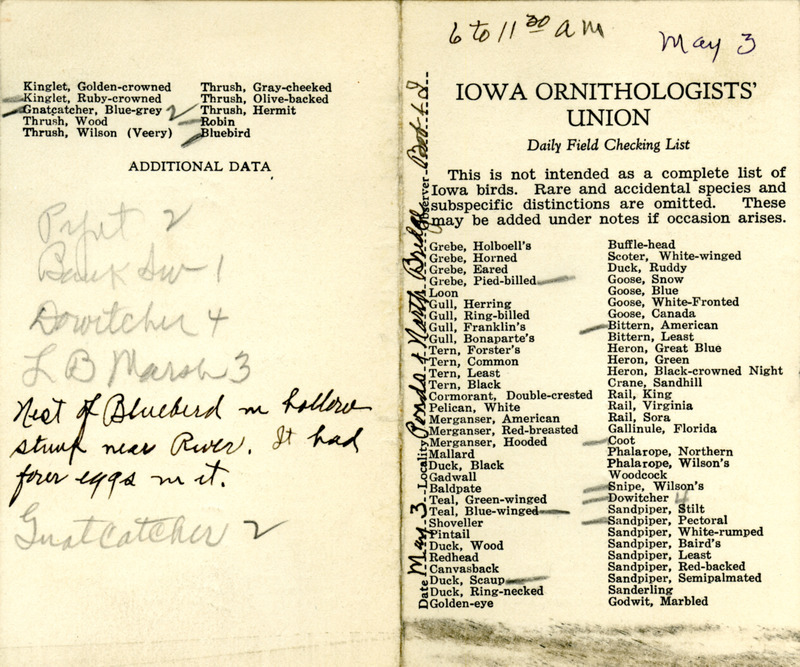 Kinglet, Golden-crowned
Kinglet, Ruby-crowned
Gnatcatcher, Blue-grey 2
Thrush, Wood
Thrush, Wilson (Veery)
Thrush, Gray-cheeked
Thrush, Olive-backed
Thrush, Hermit
Robin
Bluebird
ADDITIONAL DATA
2
Bank Sw 1
Dowitcher 4
L B Marsh 3
Nest of Bluebird in hollow
stump near River. It had
four eggs in it.
Gnatcatcher 2
6 to 11 30 am
May 3
IOWA ORNITHOLOGISTS'
UNION
Daily Field Checking List
This is not intended as a complete list of
Iowa birds. Rare and accidental species and
subspecific distinctions are omitted. These
may be added under notes if occasion arises.
Date May 3 Locality Ponds & North Bridge Observer
Grebe, Holboell's
Grebe, Horned
Grebe, Eared
Grebe, Pied-billed
Loon
Gull, Herring
Gull, Ring-billed
Gull, Franklin's
Gull, Bonaparte's
Tern, Forster's
Tern, Common
Tern, Least
Tern, Black
Cormorant, Double-crested
Pelican, White
Merganser, American
Merganser, Red-breasted
Merganser, Hooded
Mallard
Duck, Black
Gadwall
Baldpate
Teal, Green-winged
Teal, Blue-winged
Shoveller
Pintail
Duck, Wood
Redhead
Canvasback
Duck, Scaup
Duck, Ring-necked
Golden-eye
Buffle-head
Scoter, White-winged
Duck, Ruddy
Goose, Snow
Goose, Blue
Goose, White-Fronted
Goose, Canada
Bittern, American
Bittern, Least
Heron, Great Blue
Heron, Green
Heron, Black-crowned Night
Crane, Sandhill
Rail, King
Rail, Virginia
Rail, Sora
Gallinule, Florida
Coot
Phalarope, Northern
Phalarope, Wilson's
Woodcock
Snipe, Wilson's
Dowitcher 4
Sandpiper, Stilt
Sandpiper, Pectoral
Sandpiper, White-rumped
Sandpiper, Baird's
Sandpiper, Least
Sandpiper, Red-backed
Sandpiper, Semipalmated
Sanderling
Godwit, Marbled